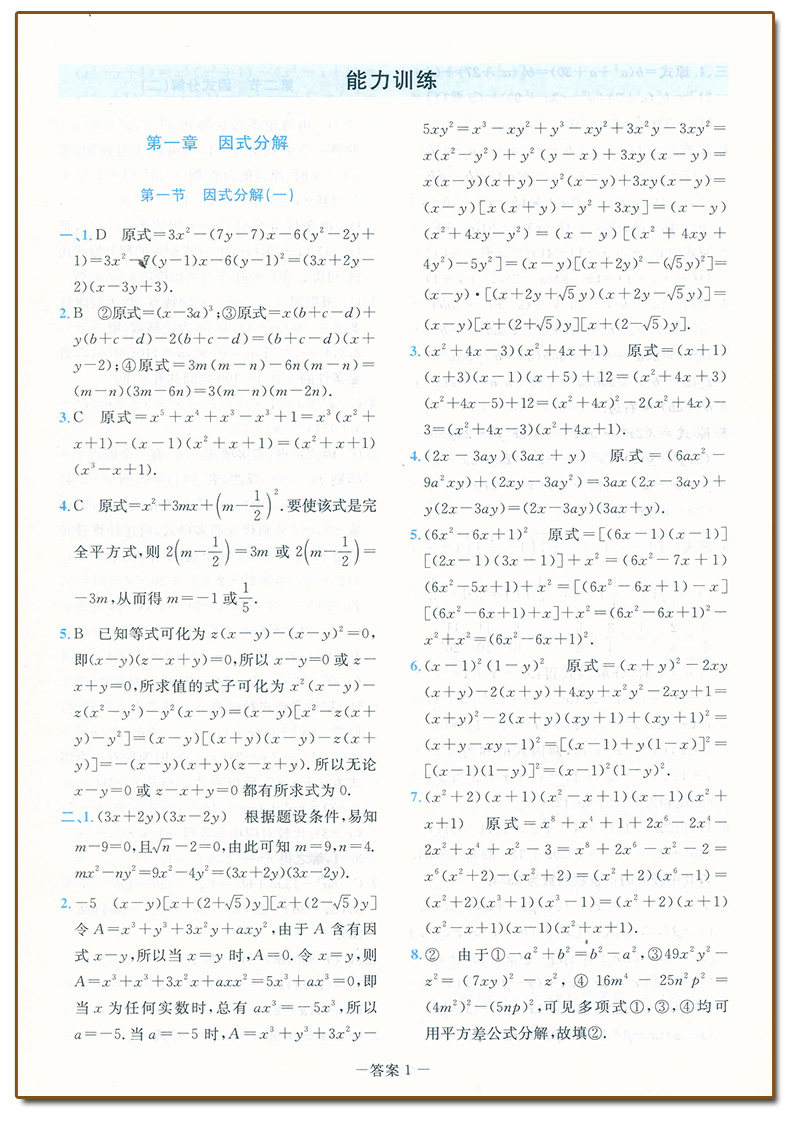 能力训练
第一章 因式分解
第一节 因式分解(一)
一、1. D 原式=3x²-(7y-7)x-6(y²-2y+
1)=3x²-7(y-1)x-6(y-1)²=(3x+2y-
2)(x-3y+3).
2. B ②原式=(x-3a)³;③原式=x(b+c-d)+
y(b+c-d)-2(b+c-d)=(b+c-d)(x+
y-2);④原式=3m(m-n)-6n(m-n)=
(m-n)(3m-6n)=3(m-n)(m-2n).
3. C 原式=x⁵+x⁴+x³-x³+1=x³(x²+
x+1)-(x-1)(x²+x+1)=(x²+x+1)
(x³-x+1).
4. C 原式=x²+3mx+(m-1/2)².要使该式是完
全平方式,则2(m-1/2)=3m或2(m-1/2)=
-3m,从而得m=-1或1/5.
5. B 已知等式可化为z(x-y)-(x-y)²=0,
即(x-y)(z-x+y)=0,所以x-y=0或z-
x+y=0,所求值的式子可化为x²(x-y)-
z(x²-y²)-y²(x-y)=(x-y)[x²-z(x+
y)-y²]=(x-y)[(x+y)(x-y)-z(x+
y)]=-(x-y)(x+y)(z-x+y).所以无论
x-y=0或z-x+y=0都有所求式为0.
二、1. (3x+2y)(3x-2y) 根据题设条件,易知
m-9=0,且√n-2=0,由此可知m=9,n=4.
mx²-ny²=9x²-4y²=(3x+2y)(3x-2y).
2. -5 (x-y)[x+(2+√5)y][x+(2-√5)y]
令A=x³+y³+3x²y+axy²,由于A含有因
式x-y,所以当x=y时,A=0.令x=y,则
A=x³+x³+3x²x+axx²=5x³+ax³=0,即
当x为任何实数时,总有ax³=-5x³,所以
a=-5.当a=-5时,A=x³+y³+3x²y-
5xy²=x³-xy²+y³-xy²+3x²y-3xy²=
x(x²-y²)+y²(y-x)+3xy(x-y)=
x(x-y)(x+y)-y²(x-y)+3xy(x-y)=
(x-y)[x(x+y)-y²+3xy]=(x-y)
(x²+4xy-y²)=(x-y)[(x²+4xy+
4y²)-5y²]=(x-y)[(x+2y)²-(√5y)²]=
(x-y)·[(x+2y+√5y)(x+2y-√5y)]=
(x-y)[x+(2+√5)y][x+(2-√5)y].
3. (x²+4x-3)(x²+4x+1) 原式=(x+1)
(x+3)(x-1)(x+5)+12=(x²+4x+3)
(x²+4x-5)+12=(x²+4x)²-2(x²+4x)-
3=(x²+4x-3)(x²+4x+1).
4. (2x-3ay)(3ax+y) 原式=(6ax²-
9a²xy)+(2xy-3ay²)=3ax(2x-3ay)+
y(2x-3ay)=(2x-3ay)(3ax+y).
5. (6x²-6x+1)² 原式=[(6x-1)(x-1)]
[(2x-1)(3x-1)]+x²=(6x²-7x+1)
(6x²-5x+1)+x²=[(6x²-6x+1)-x]
[(6x²-6x+1)+x]+x²=(6x²-6x+1)²-
x²+x²=(6x²-6x+1)².
6. (x-1)²(1-y)² 原式=(x+y)²-2xy
(x+y)-2(x+y)+4xy+x²y²-2xy+1=
(x+y)²-2(x+y)(xy+1)+(xy+1)²=
(x+y-xy-1)²=[(x-1)+y(1-x)]²=
[(x-1)(1-y)]²=(x-1)²(1-y)².
7. (x²+2)(x+1)(x²-x+1)(x-1)(x²+
x+1) 原式=x⁸+x⁴+1+2x⁶-2x⁴-
2x²+x⁴+x²-3=x⁸+2x⁶-x²-2=
x⁶(x²+2)-(x²+2)=(x²+2)(x⁶-1)=
(x²+2)(x³+1)(x³-1)=(x²+2)(x+1)
(x²-x+1)(x-1)(x²+x+1).
8. ② 由于①-a²+b²=b²-a²,③49x²y²-
z²=(7xy)²-z²,④16m⁴-25n²p²=
(4m²)²-(5np)²,可见多项式①,③,④均可
用平方差公式分解,故填②.
—答案1—